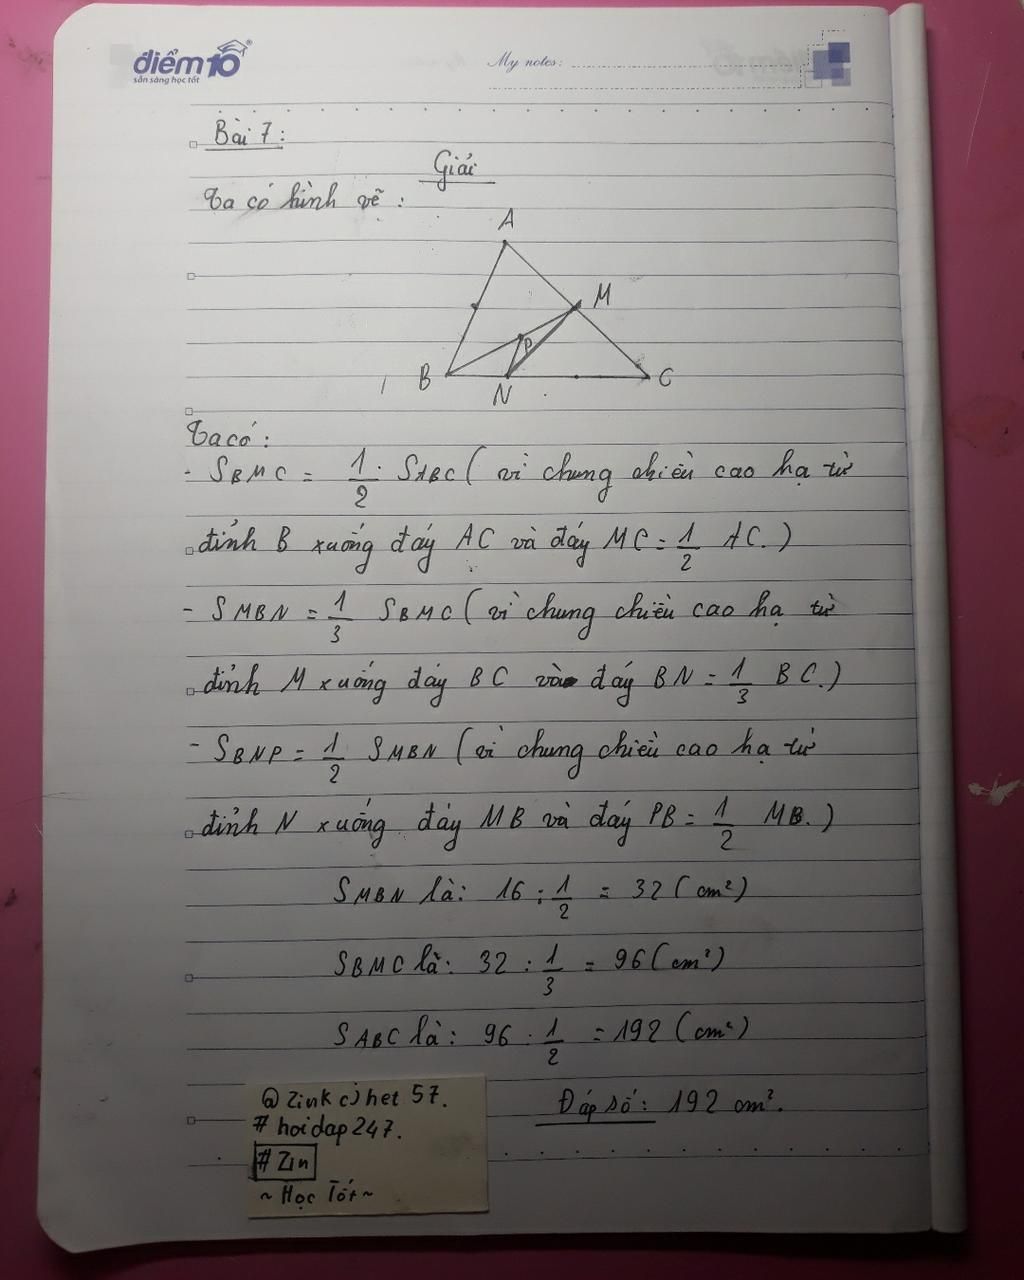 điểm10
sẵn sàng học tốt
My notes:
Bài 7:
Giải
Ta có hình vẽ :
A
M
P
B
N
C
Ta có :
- SBMC = 1/2 . SABC ( vì chung chiều cao hạ từ
đỉnh B xuống đáy AC và đáy MC = 1/2 AC. )
- SMBN = 1/3 SBMC ( vì chung chiều cao hạ từ
đỉnh M xuống đáy BC và đáy BN = 1/3 BC. )
- SBNP = 1/2 SMBN ( vì chung chiều cao hạ từ
đỉnh N xuống đáy MB và đáy PB = 1/2 MB. )
SMBN là: 16 : 1/2 = 32 ( cm²)
SBMC là: 32 : 1/3 = 96 ( cm²)
SABC là: 96 : 1/2 = 192 ( cm²)
Đáp số: 192 cm².
# hoidap247.
# Zin
~ Học Tốt ~